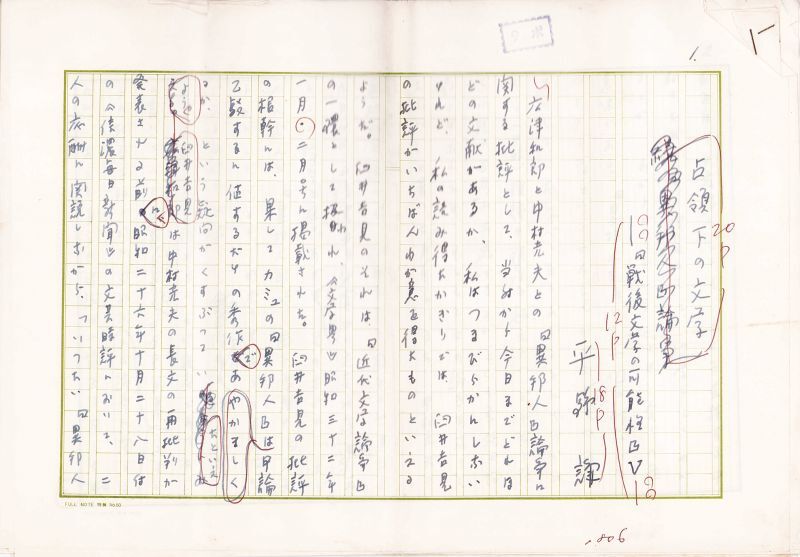 1.
占領下の文学
20P
「異邦人」論争
『戦後文学の可能性』
12P
平野謙
18P
広津和郎と中村光夫との『異邦人』論争に
関する批評として、当時から今日までどれほ
どの文献があるか、私はつまびらかにしない
けれど、私の読み得たかぎりでは、臼井吉見
の批評がいちばんわが意を得たものといえる
ようだ。臼井吉見のそれは、『近代文学論争』
の一環として扱われ、《文学界》昭和三十二年
一月・二月号に掲載された。臼井吉見の批評
の根幹は、果してカミュの『異邦人』は甲論
乙駁するに値するだけの秀作であ
やかましく
るか、という疑問がくすぶってい
たといえ
ようか。臼井吉見は中村光夫の長文の再批判が
発表される前に、昭和二十六年十月二十八日付
の《信濃毎日新聞》の文芸時評において、二
人の応酬に関説しながら、「いったい『異邦人
FULL NOTE 特製 No.50